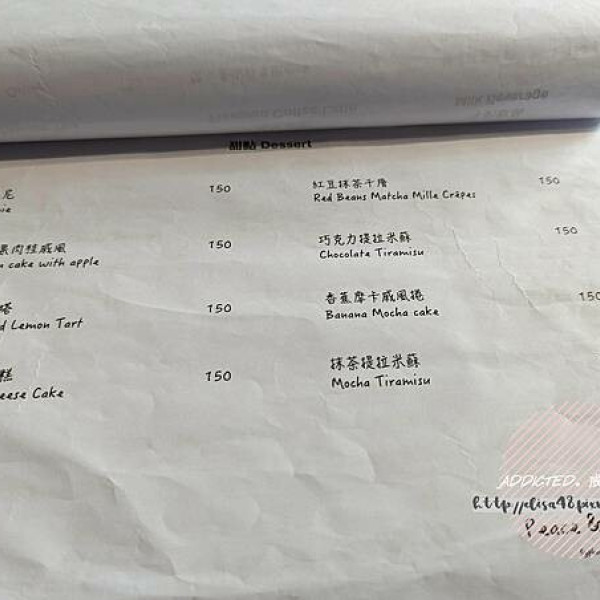 甜點 Dessert
尼 150
ie
果肉桂戚風 150
cake with apple
塔 150
d Lemon Tart
糕 150
eese Cake
紅豆抹茶千層 150
Red Beans Matcha Mille Crêpes
巧克力提拉米蘇 150
Chocolate Tiramisu
香蕉摩卡戚風捲 150
Banana Mocha cake
抹茶提拉米蘇
Mocha Tiramisu
ADDICTED.
http://elisa48pix